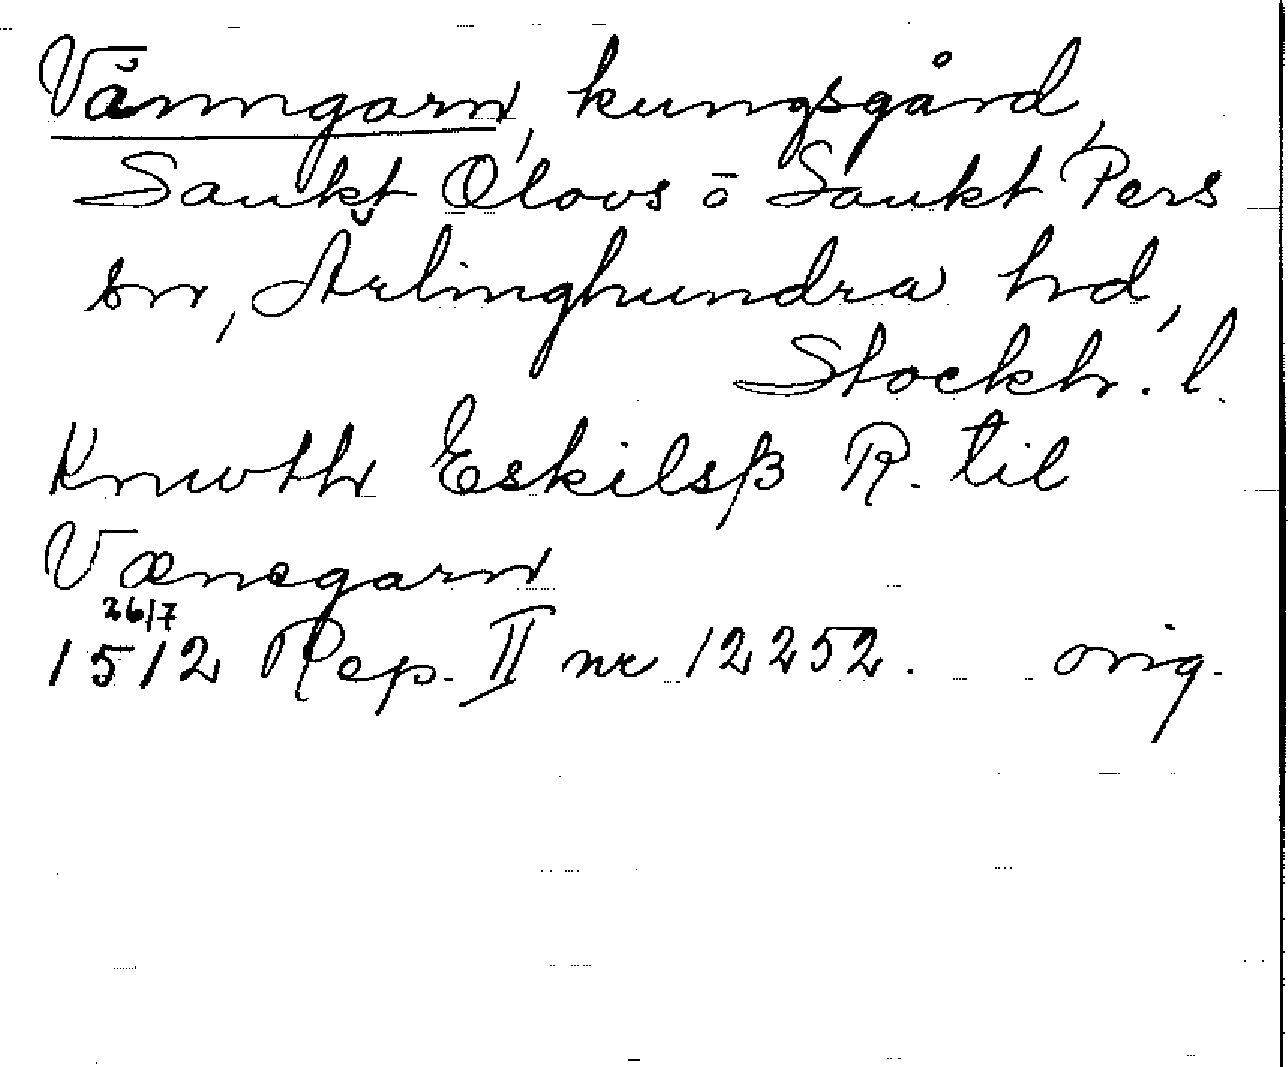 Vänngarn, kungsgård,
Sankt Olovs o Sankt Pers
snr, Ärlinghundra hrd,
Stockh. l.
Knwthr Eskilsß R. til
Vænegarn
26/7
1512 Rep. II nr 12252. orig.